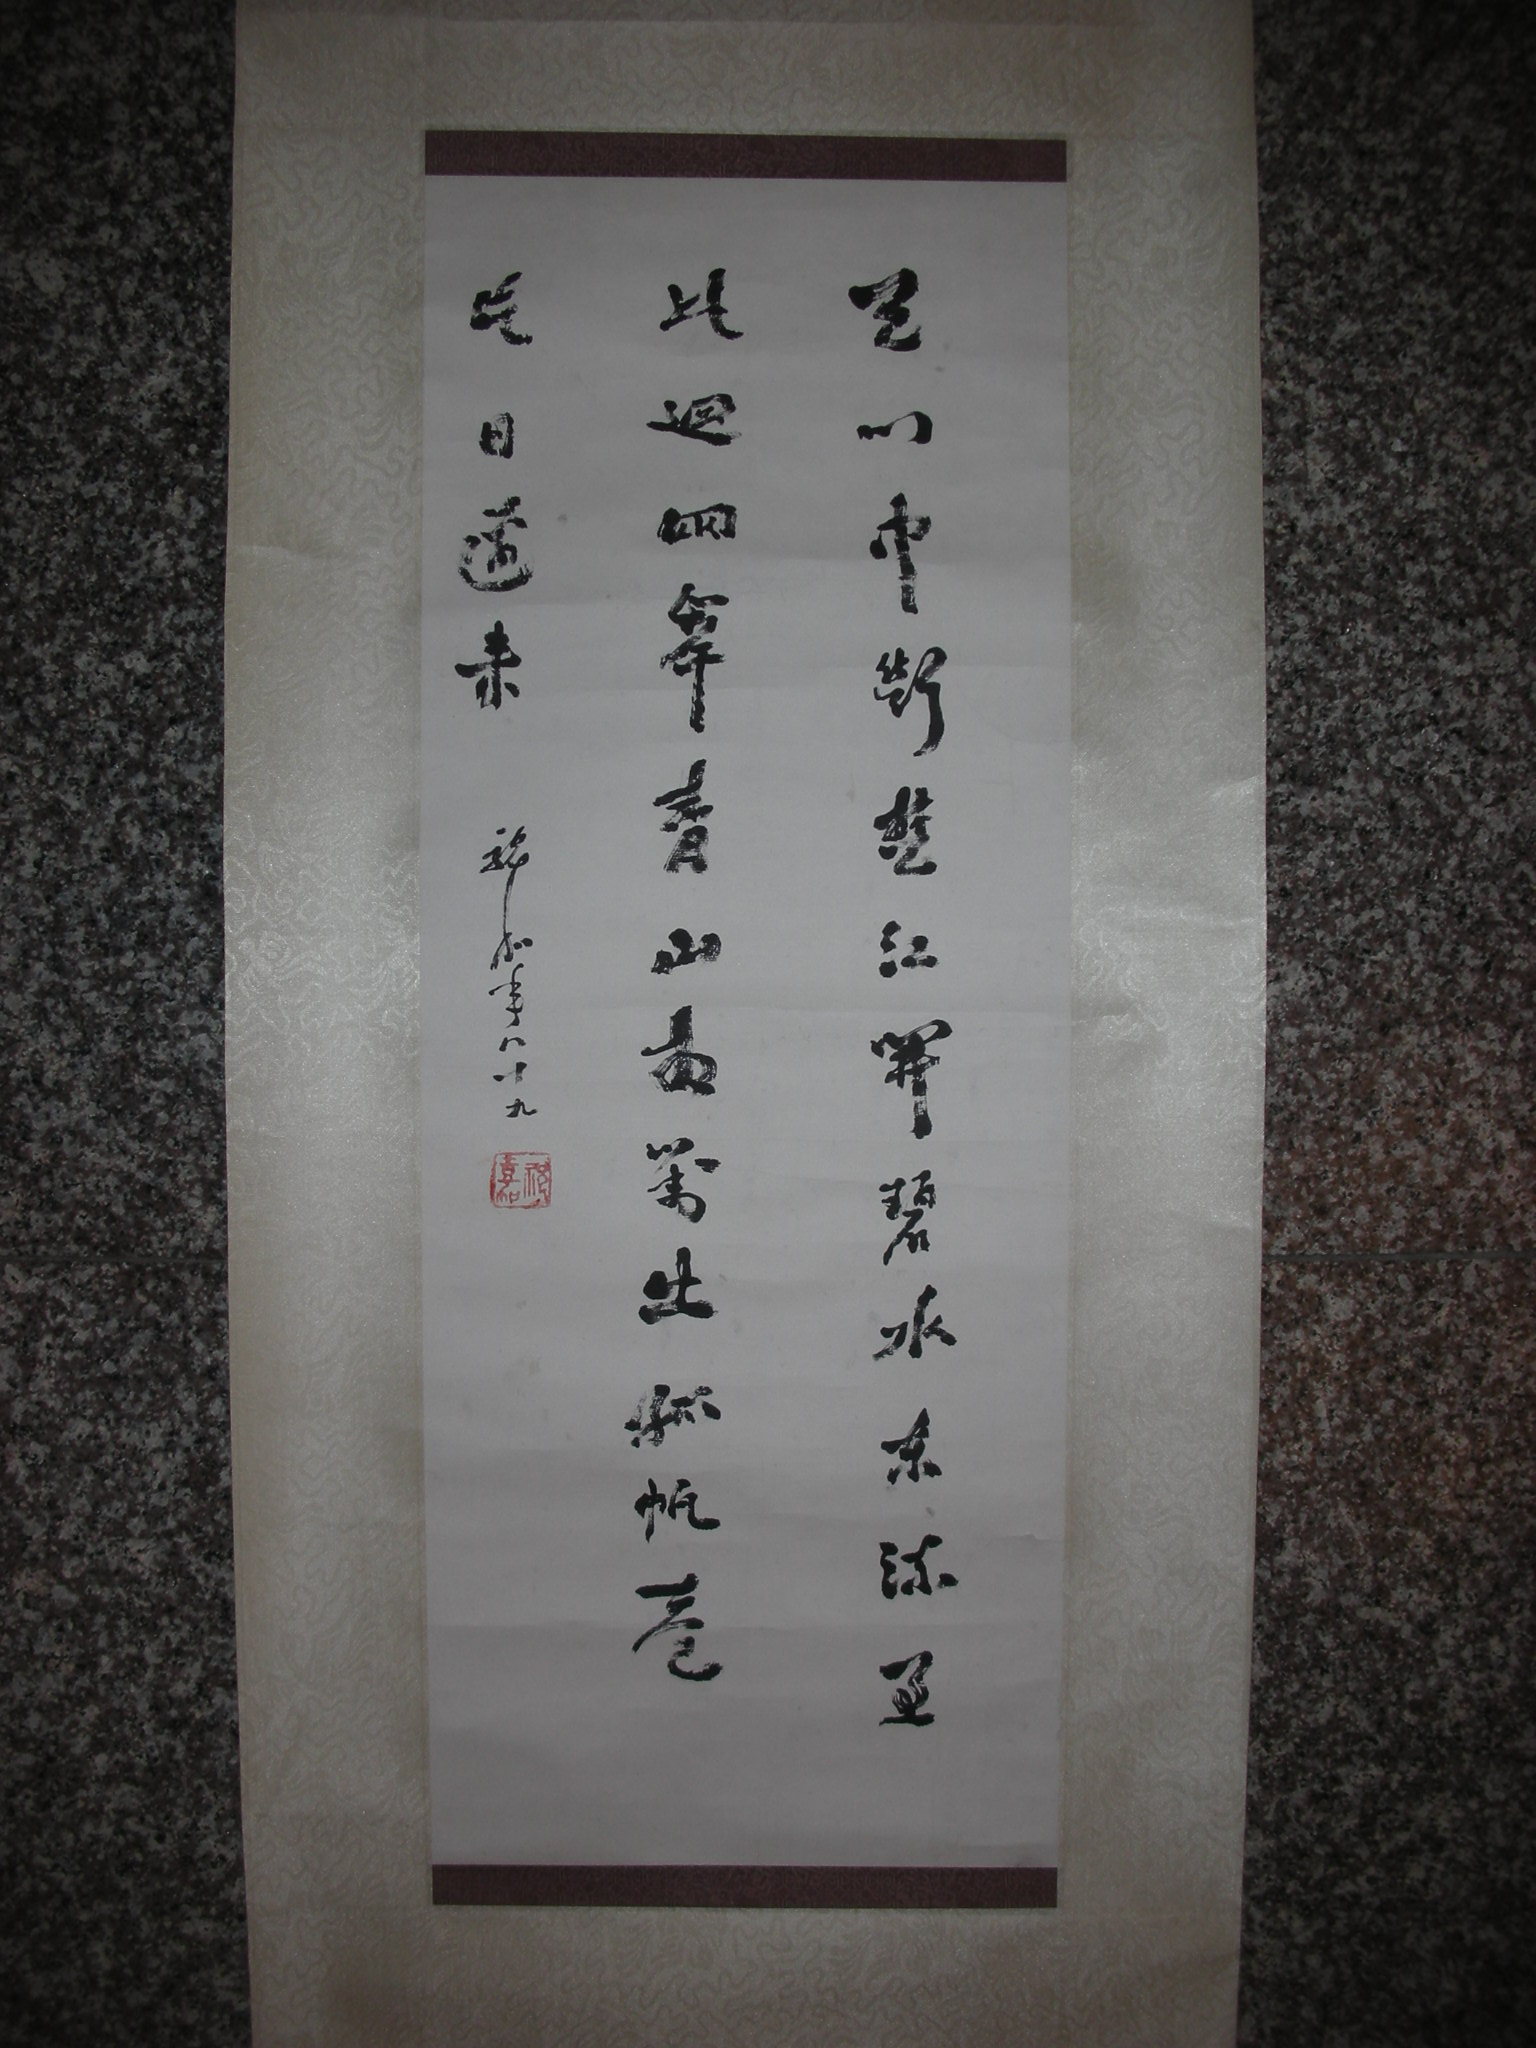 天門中斷楚江開碧水東流至
此迴兩岸青山相對出孤帆一
片日邊來
祝嘉年八十九
祝嘉